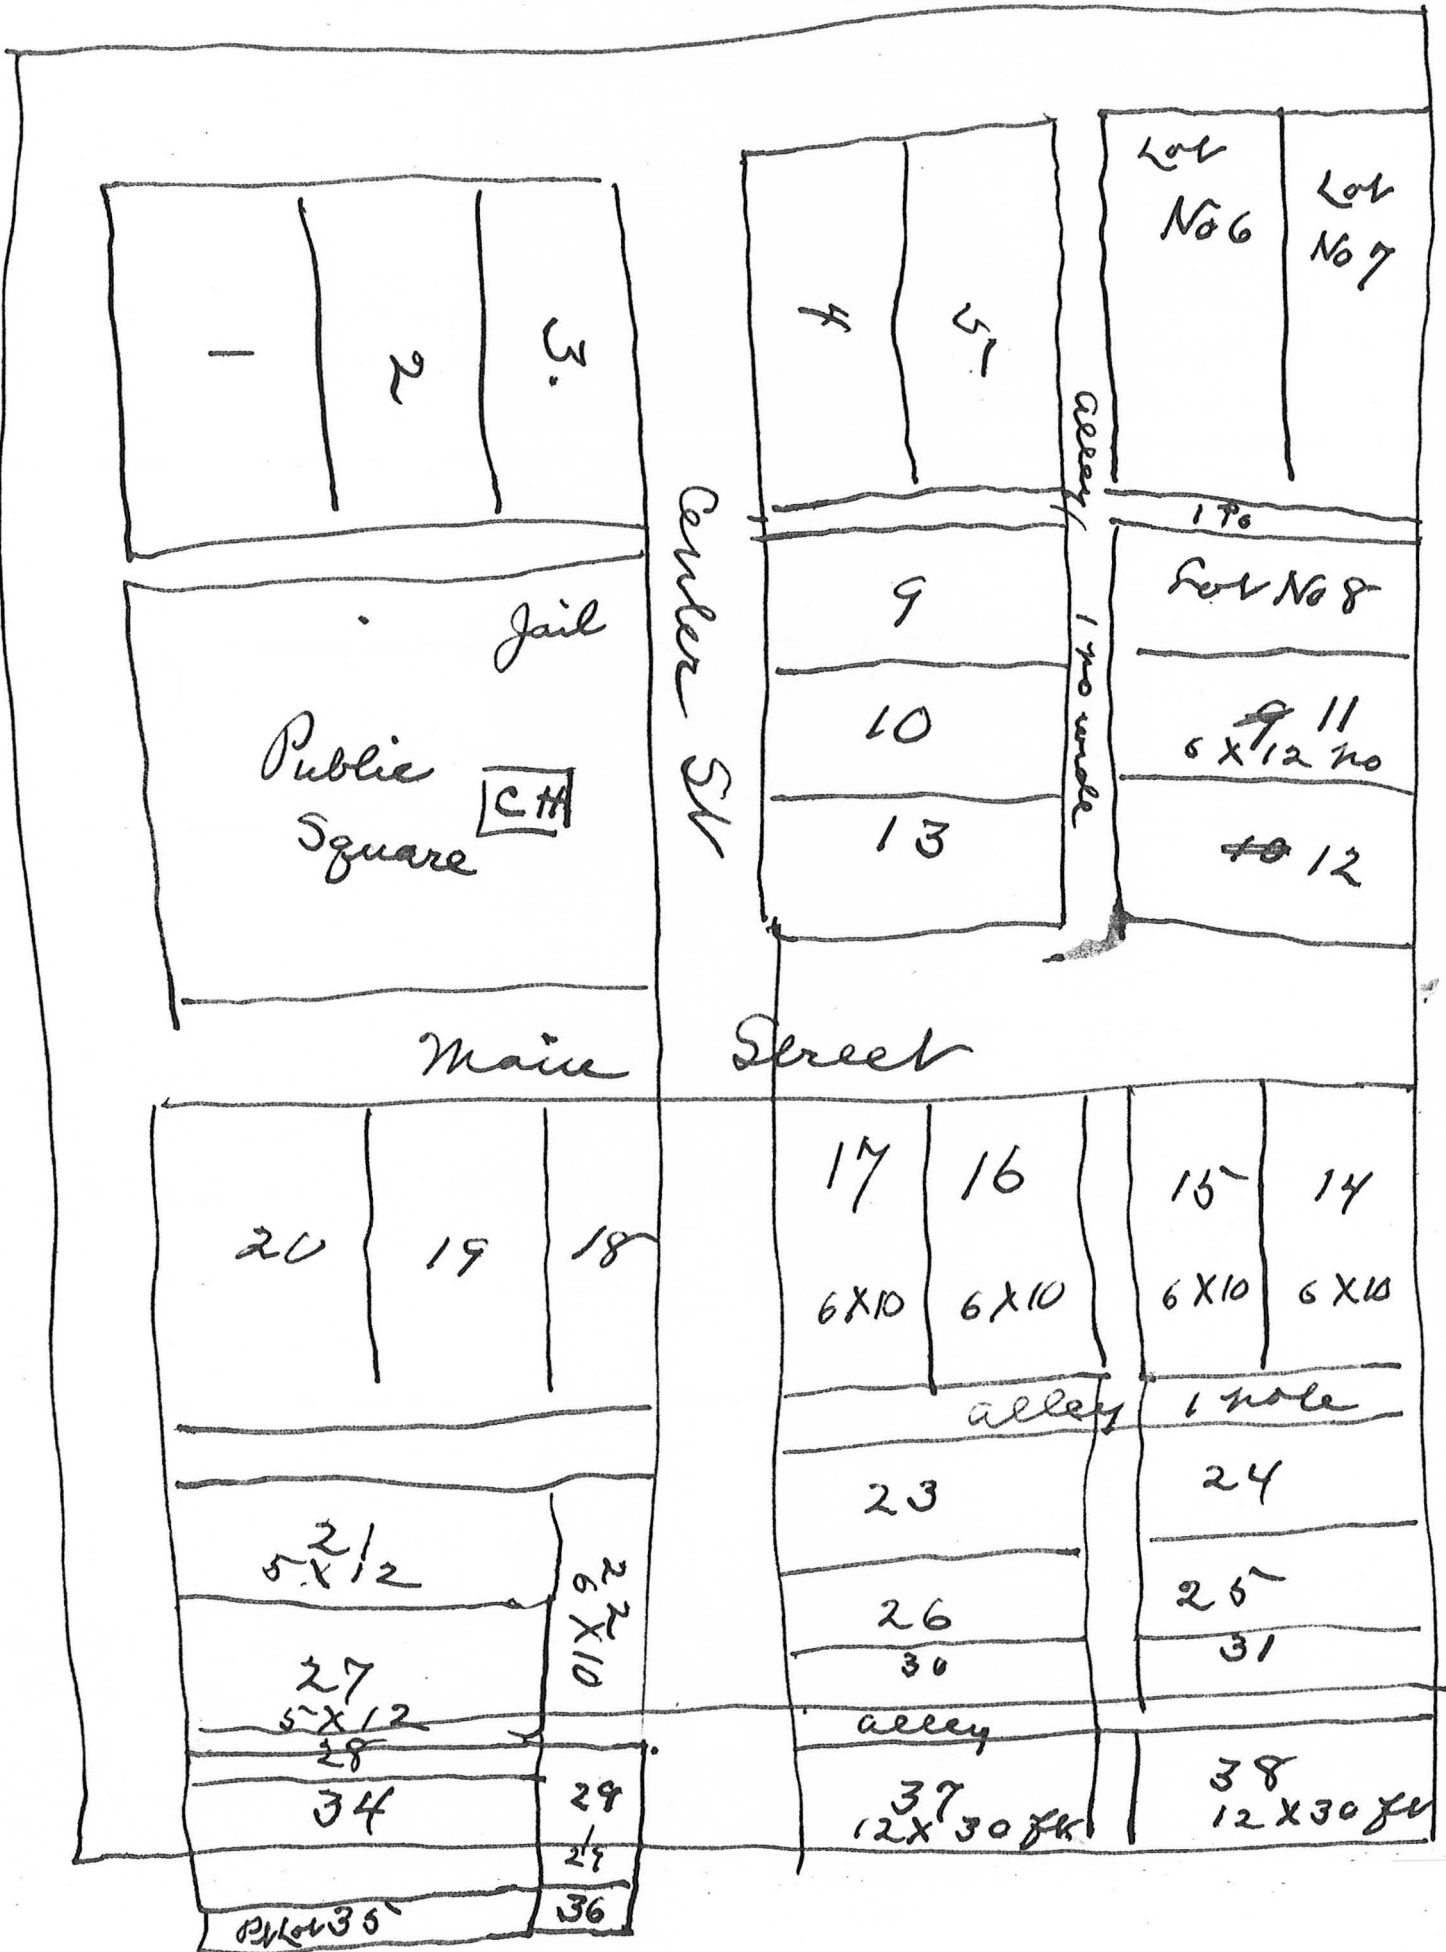 1
2
3.
4
5
Lot
No 6
Lot
No 7
alley
1 Po
Center St
Jail
Public
Square
CH
9
10
13
1 po wide
Lot No 8
9 11
6 X 12 po
10 12
Main Street
20
19
18
17
6X10
16
6X10
15
6X10
14
6X10
alley 1 pole
21
5 X 12
22
6 X 10
23
24
26
25
27
5 X 12
30
31
28
alley
34
29
37
12 X 30 ft
38
12 X 30 ft
29
Pt Lot 35
36